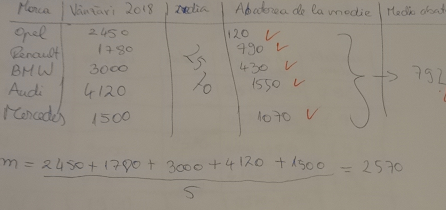 Marca Vânzări 2018 Media Abaterea de la medie Media
Opel 2450 120 ✓
Renault 1780 790 ✓
BMW 3000 430 ✓
Audi 4120 1550 ✓
Mercedes 1500 1070 ✓
2570
→ 792
m = 2450 + 1780 + 3000 + 4120 + 1500 = 2570
5